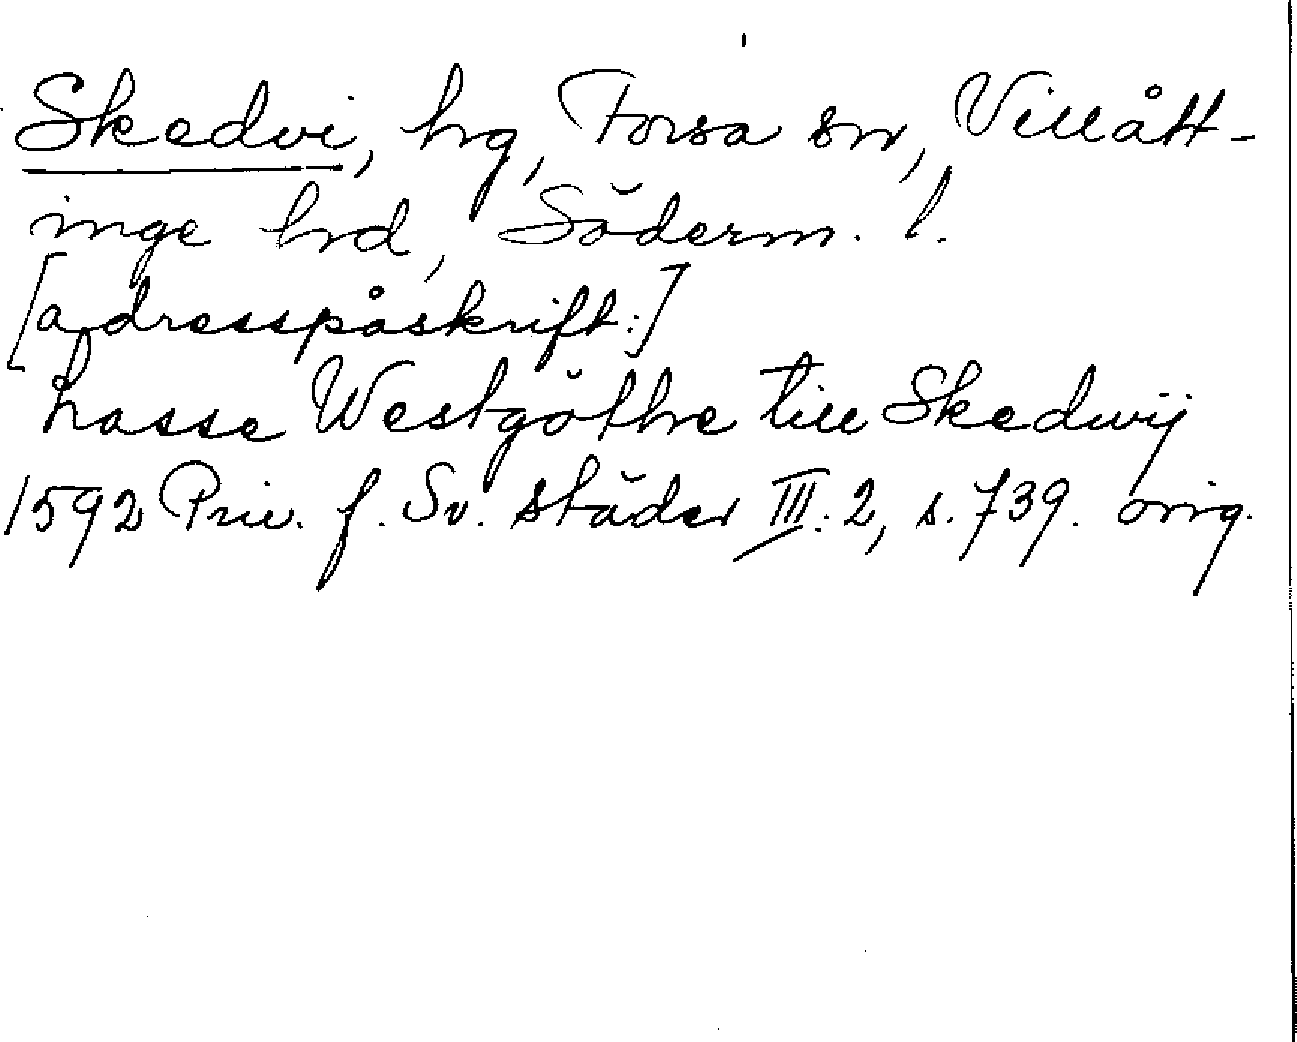 Skedvi, hg, Forsa sn, Villått-
inge hrd, Söderm. l.
[adresspåskrift:]
Lasse Westgöthe till Skedwij
1592 Priv. f. Sv. städer III:2, s. 739. orig.